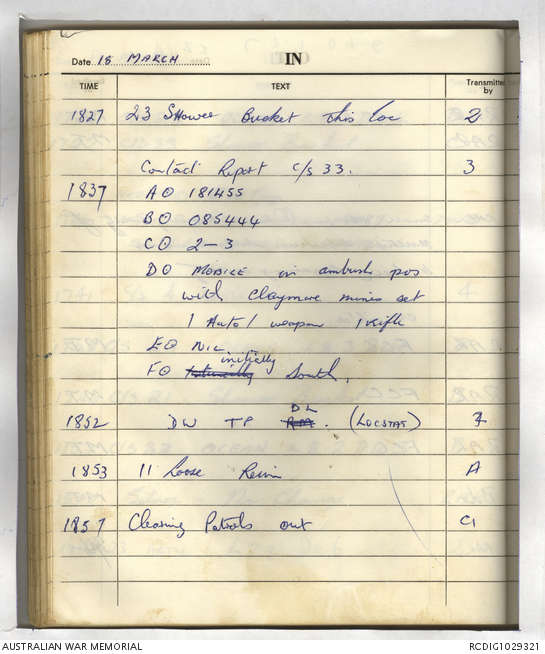 Date 18 MARCH IN
TIME TEXT Transmitted by
1827 23 Shower Bucket this loc 2
Contact Report c/s 33. 3
1837 AO 181455
BO 085444
CO 2-3
DO MOBILE in ambush pos
with Claymore mines set
1 Auto/ weapon 1 Rifle
EO NIL
initially
FO South.
DL
1852 DW TP RM. (LOCSTAT) 7
1853 11 Loose Rein A
1857 Clearing Patrols out C1
AUSTRALIAN WAR MEMORIAL RCDIG1029321